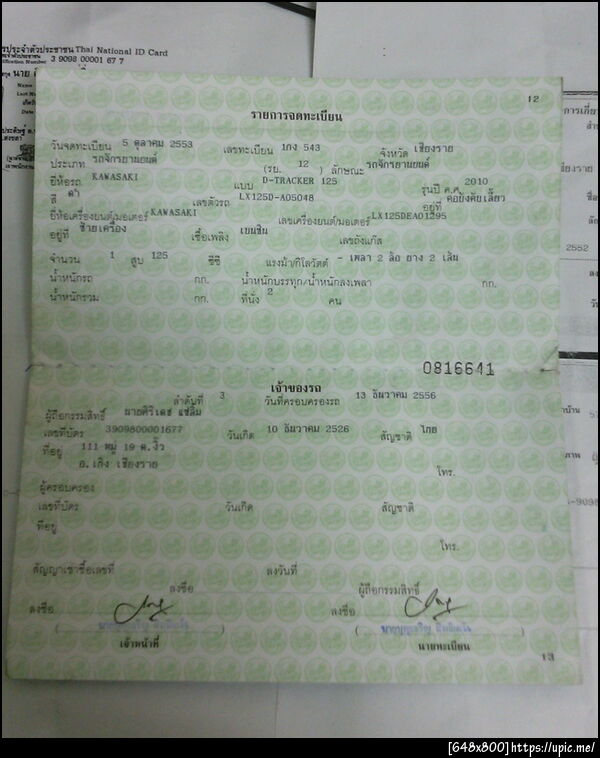 รประจำตัวประชาชน Thai National ID Card
3 9098 00001 67 7
12
รายการจดทะเบียน
วันจดทะเบียน 5 ตุลาคม 2553 เลขทะเบียน 1กง 543 จังหวัด เชียงราย
ประเภท รถจักรยานยนต์ (รย. 12 ) ลักษณะ รถจักรยานยนต์
ยี่ห้อรถ KAWASAKI แบบ D-TRACKER 125 รุ่นปี ค.ศ. 2010
สี ดำ เลขตัวรถ LX125D-A05048 อยู่ที่ คอบังคับเลี้ยว
ยี่ห้อเครื่องยนต์/มอเตอร์ KAWASAKI เลขเครื่องยนต์/มอเตอร์ LX125DEA01295
อยู่ที่ ซ้ายเครื่อง เชื้อเพลิง เบนซิน เลขถังแก๊ส
จำนวน 1 สูบ 125 ซีซี แรงม้า/กิโลวัตต์ - เพลา 2 ล้อ ยาง 2 เส้น
น้ำหนักรถ กก. น้ำหนักบรรทุก/น้ำหนักลงเพลา กก.
น้ำหนักรวม กก. ที่นั่ง 2 คน
0816641
เจ้าของรถ
ลำดับที่ 3 วันที่ครอบครองรถ 13 ธันวาคม 2556
ผู้ถือกรรมสิทธิ์ นายศิริเดช แซ่ลิ้ม
เลขที่บัตร 3909800001677 วันเกิด 10 ธันวาคม 2526 สัญชาติ ไทย
ที่อยู่ 111 หมู่ 19 ต.งิ้ว
อ.เทิง เชียงราย
โทร.
ผู้ครอบครอง
เลขที่บัตร วันเกิด สัญชาติ
ที่อยู่
โทร.
สัญญาเช่าซื้อเลขที่ ลงวันที่
ลงชื่อ ผู้ถือกรรมสิทธิ์
ลงชื่อ ลงชื่อ
เจ้าหน้าที่ นายทะเบียน
13
[648x800]https://upic.me/